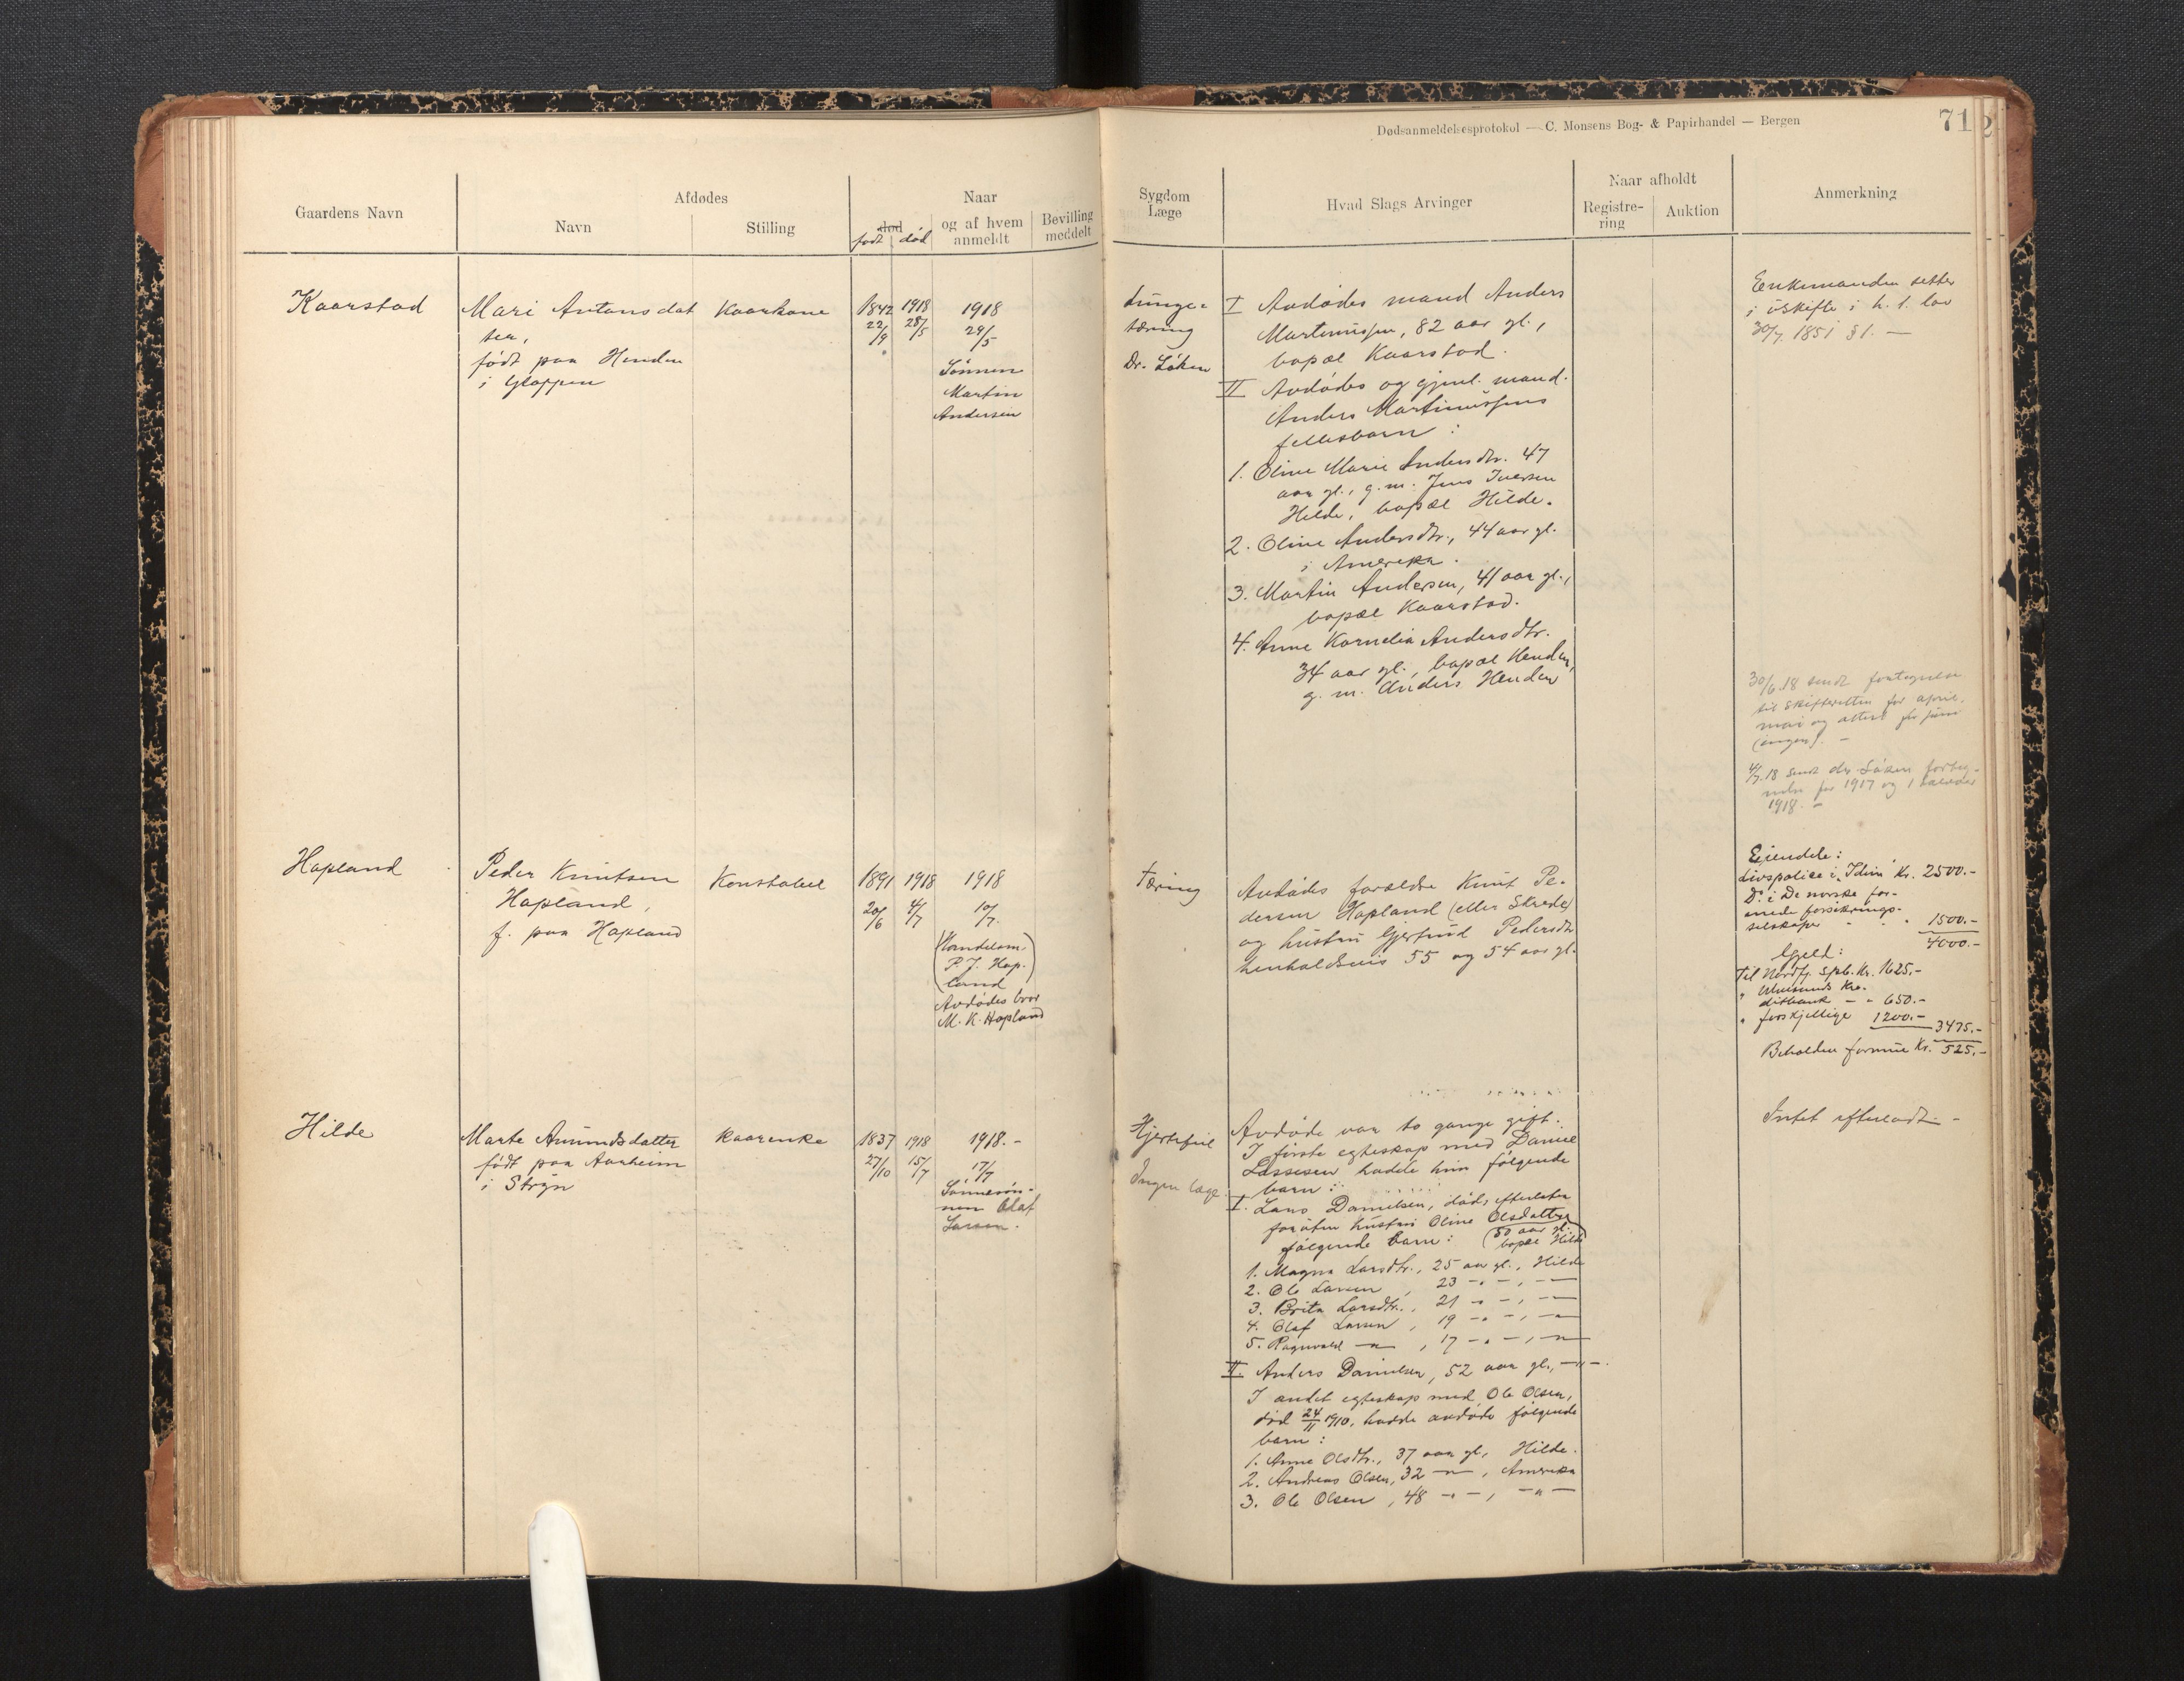 Dødsanmeldelsesprotokol — C. Monsens Bog- & Papirhandel — Bergen
71
2
Gaardens Navn
Afdødes
Navn
Stilling
Naar
død
født død
og af hvem
anmeldt
Bevilling
meddelt
Sygdom
Læge
Hvad Slags Arvinger
Naar afholdt
Registre-
ring
Auktion
Anmerkning
Kaarstad
Mari Antonsdat
ter,
født paa Henden
i Gloppen
Kaarkone
1842
22/9
1918
28/5
1918
29/5
Sønnen
Martin
Andersen
Lunge-
tæring
Dr. Løken
I Avdødes mand Anders
Martinussen, 82 aar gl.,
bopæl Kaarstad.
II Avdødes og gjenl. mand
Anders Martinussens
fellesbarn:
1. Oline Marie Andersdtr. 47
aar gl., g. m. Jens Iversen
Hilde, bopæl Hilde.
2. Oline Andersdtr., 44 aar gl.
i Amerika.
3. Martin Andersen, 41 aar gl.,
bopæl Kaarstad.
4. Anne Kornelia Andersdtr.
34 aar gl., bopæl Henden,
g. m. Anders Henden
Enkemanden sitter
i uskifte i h. t. lov
30/7 1851 § 1. —
30/6 18 sendt fortegnelse
til skifteretten for april,
mai og attest for juni
(ingen). —
4/7 18 sendt dr. Løken forteg-
nelse for 1917 og 1 halvaar
1918. —
Hopland
Peder Knutsen
Hopland,
f. paa Hopland
Konstabel
1891
20/6
1918
4/7
1918
10/7
(Handelsm.
P. J. Hop-
land)
Avdødes bror
M. K. Hopland
Tæring
Avdødes forældre Knut Pe-
dersen Hopland (eller Strede)
og hustru Gjertrud Pedersdtr
henholdsvis 55 og 54 aar gl.
Eiendele:
Livspolice i "Idun" Kr. 2500.-
Do i De norske for-
enede forsikrings-
selskaper - " 1500.-
4000.-
Gjeld:
Til Nordfj. Spb. Kr. 1625.-
" Aalesunds Kre-
ditbank - " 650.-
" forskjellige 1200.-
3475.-
Beholden formue Kr. 525.-
Hilde
Marte Amundsdatter
født paa Aarheim
i Stryn
Kaarenke
1837
27/10
1918
15/7
1918.-
17/7
Sønnesøn-
nen Olaf
Larsen.
Hjertefeil
Ingen læge.
Avdøde var to gange gift.
I første egteskap med Daniel
Lassesen hadde hun følgende
barn:
I. Lars Danielsen, død, efterlater
foruten hustru Oline Olsdatter
følgende barn: (50 aar gl.
bopæl Hilde)
1. Magna Larsdtr., 25 aar gl., Hilde
2. Ole Larsen, 23 -"-, -"-
3. Brita Larsdtr., 21 -"-, -"-
4. Olaf Larsen, 19 -"-, -"-
5. Ragnvald -"-, 17 -"-, -"-
II. Anders Danielsen, 52 aar gl., -"-.
I andet egteskap med Ole Olsen,
død 24/11 1910, hadde avdøde følgende
barn:
1. Anne Olsdtr., 37 aar gl., Hilde.
2. Andreas Olsen, 32 -"-, Amerika
3. Ole Olsen, 48 -"-, -"-
Intet efterladt. -